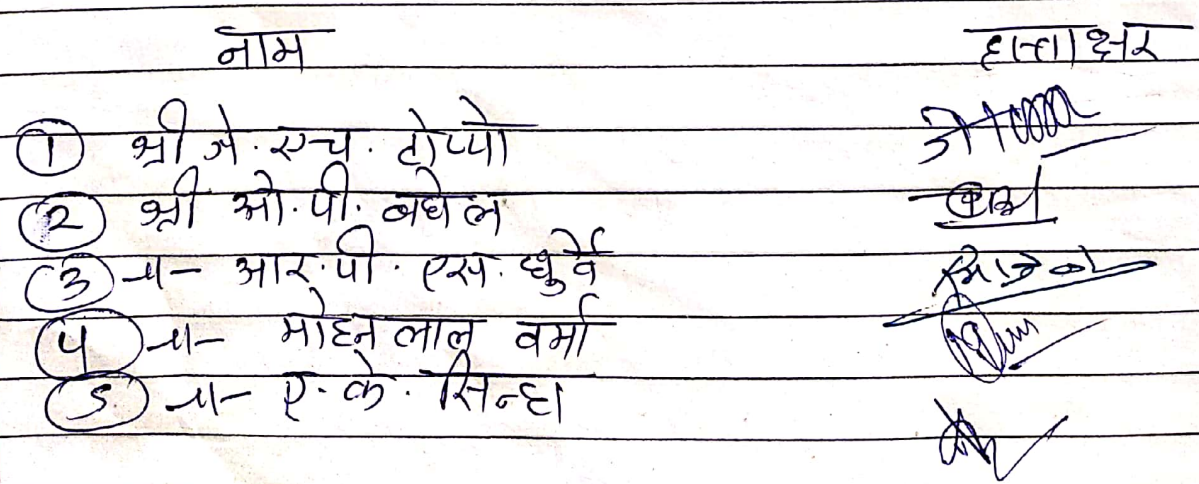 नाम हस्ताक्षर
1 श्री जे. एच. टोप्पो
2 श्री ओ. पी. बघेल
3 -॥- आर. पी. एस. धुर्वे
4 -॥- मोहन लाल वर्मा
5. -॥- ए. के. सिन्हा